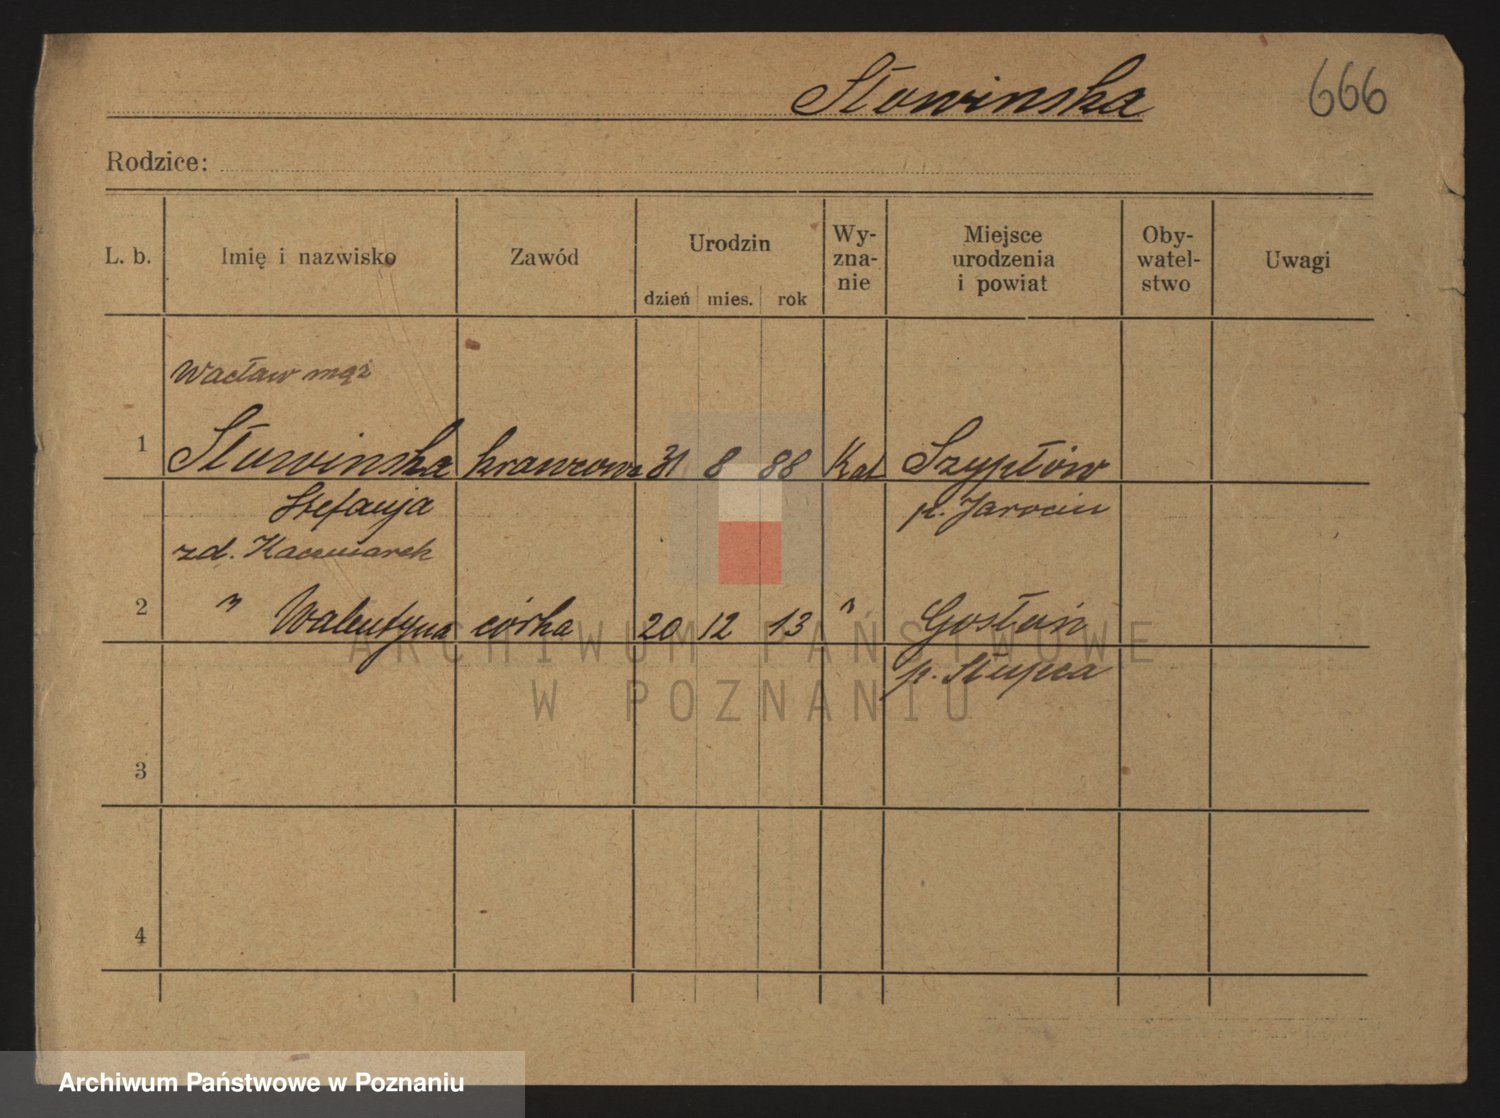 Słowinska
666
Rodzice:
L. b. Imię i nazwisko Zawód Urodzin dzień mies. rok Wy-zna-nie Miejsce urodzenia i powiat Oby-watel-stwo Uwagi
Wacław mąż
1 Słowinska krawcowa 31 8 88 Kat Szypłów
Stefanja p. Jarocin
zd. Kaczmarek
2 " Walentyna córka 20 12 13 " Gostuń
p. Słupca
3
4
ARCHIWUM PAŃSTWOWE
W POZNANIU
Archiwum Państwowe w Poznaniu